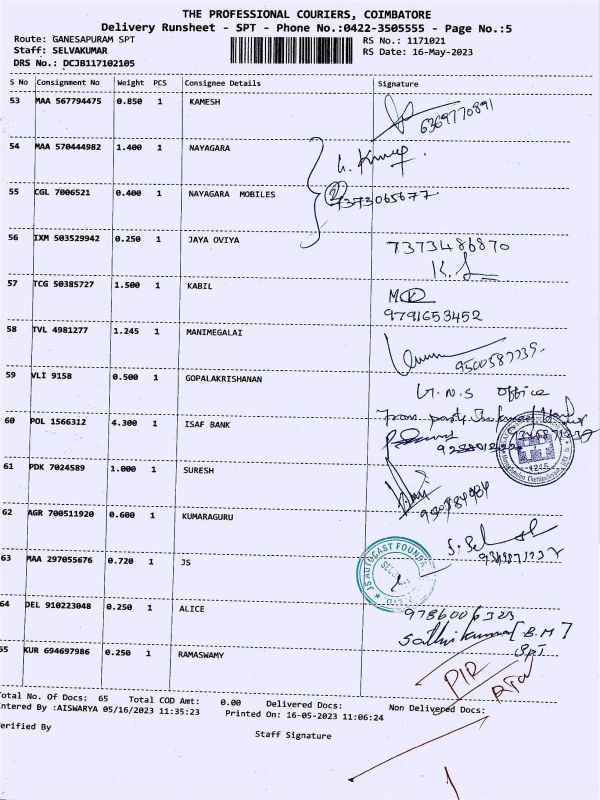 THE PROFESSIONAL COURIERS, COIMBATORE
Delivery Runsheet - SPT - Phone No.:0422-3505555 - Page No.:5
Route: GANESAPURAM SPT
Staff: SELVAKUMAR
DRS No.: DCJB117102105
RS No.: 1171021
RS Date: 16-May-2023
S No Consignment No Weight PCS Consignee Details Signature
53 MAA 567794475 0.850 1 KAMESH
6369770891
54 MAA 570444982 1.400 1 NAYAGARA
55 CGL 7006521 0.400 1 NAYAGARA MOBILES
2
7373065677
56 IXM 503529942 0.250 1 JAYA OVIYA 7373486870
57 TCG 50385727 1.500 1 KABIL
9791653452
58 TVL 4981277 1.245 1 MANIMEGALAI
59 VLI 9158 0.500 1 GOPALAKRISHANAN
office
60 POL 1566312 4.300 1 ISAF BANK
61 PDK 7024589 1.000 1 SURESH
62 AGR 700511920 0.600 1 KUMARAGURU
63 MAA 297055676 0.720 1 JS
JS AUTOCAST FOUNDR
64 DEL 910223048 0.250 1 ALICE
9786006323
Sathikumar [B.M]
SPT
65 KUR 694697986 0.250 1 RAMASWAMY
Total No. Of Docs: 65 Total COD Amt: 0.00 Delivered Docs: Non Delivered Docs:
Entered By :AISWARYA 05/16/2023 11:35:23 Printed On: 16-05-2023 11:06:24
Verified By
Staff Signature